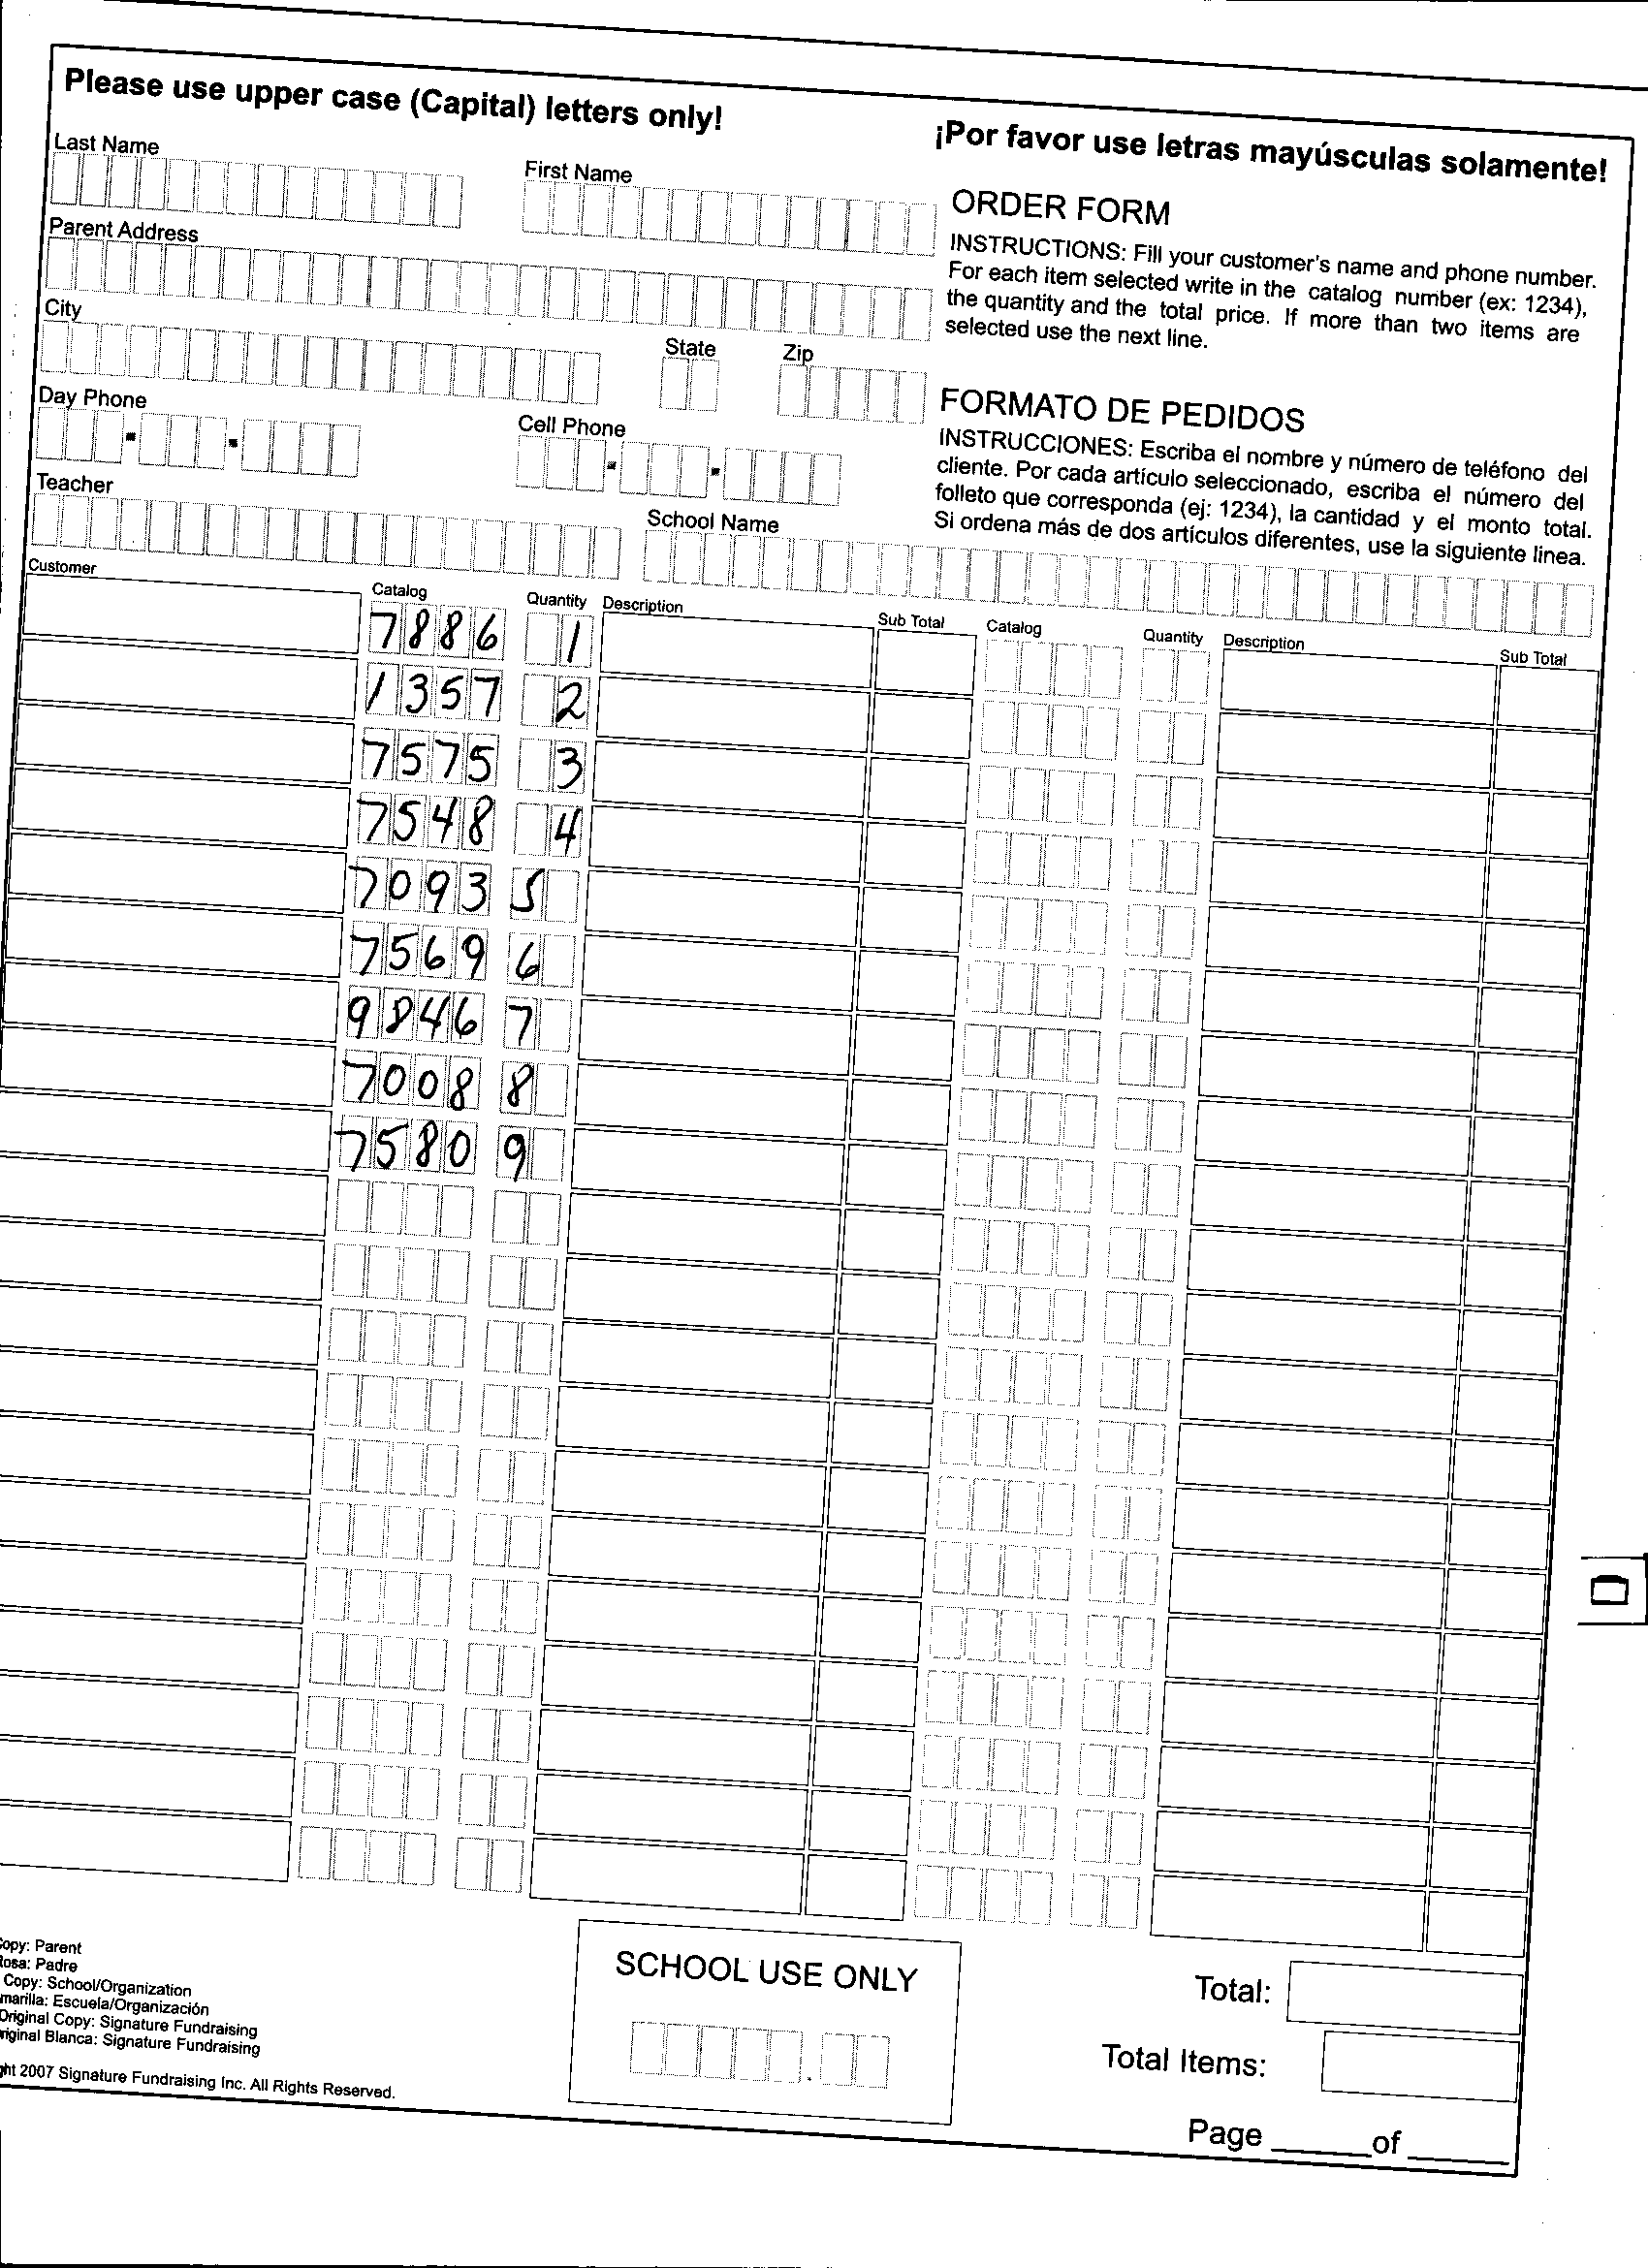 Please use upper case (Capital) letters only!
¡Por favor use letras mayúsculas solamente!
Last Name
First Name
Parent Address
City
State
Zip
Day Phone
Cell Phone
Teacher
School Name
ORDER FORM
INSTRUCTIONS: Fill your customer's name and phone number.
For each item selected write in the catalog number (ex: 1234),
the quantity and the total price. If more than two items are
selected use the next line.
FORMATO DE PEDIDOS
INSTRUCCIONES: Escriba el nombre y número de teléfono del
cliente. Por cada artículo seleccionado, escriba el número del
folleto que corresponda (ej: 1234), la cantidad y el monto total.
Si ordena más de dos artículos diferentes, use la siguiente linea.
Customer Catalog Quantity Description Sub Total Catalog Quantity Description Sub Total
7886 1
1357 2
7575 3
7548 4
7093 5
7569 6
9846 7
7008 8
7580 9
D
opy: Parent
osa: Padre
Copy: School/Organization
marilla: Escuela/Organización
Original Copy: Signature Fundraising
riginal Blanca: Signature Fundraising
ght 2007 Signature Fundraising Inc. All Rights Reserved.
SCHOOL USE ONLY
.
Total:
Total Items:
Page ______of ______